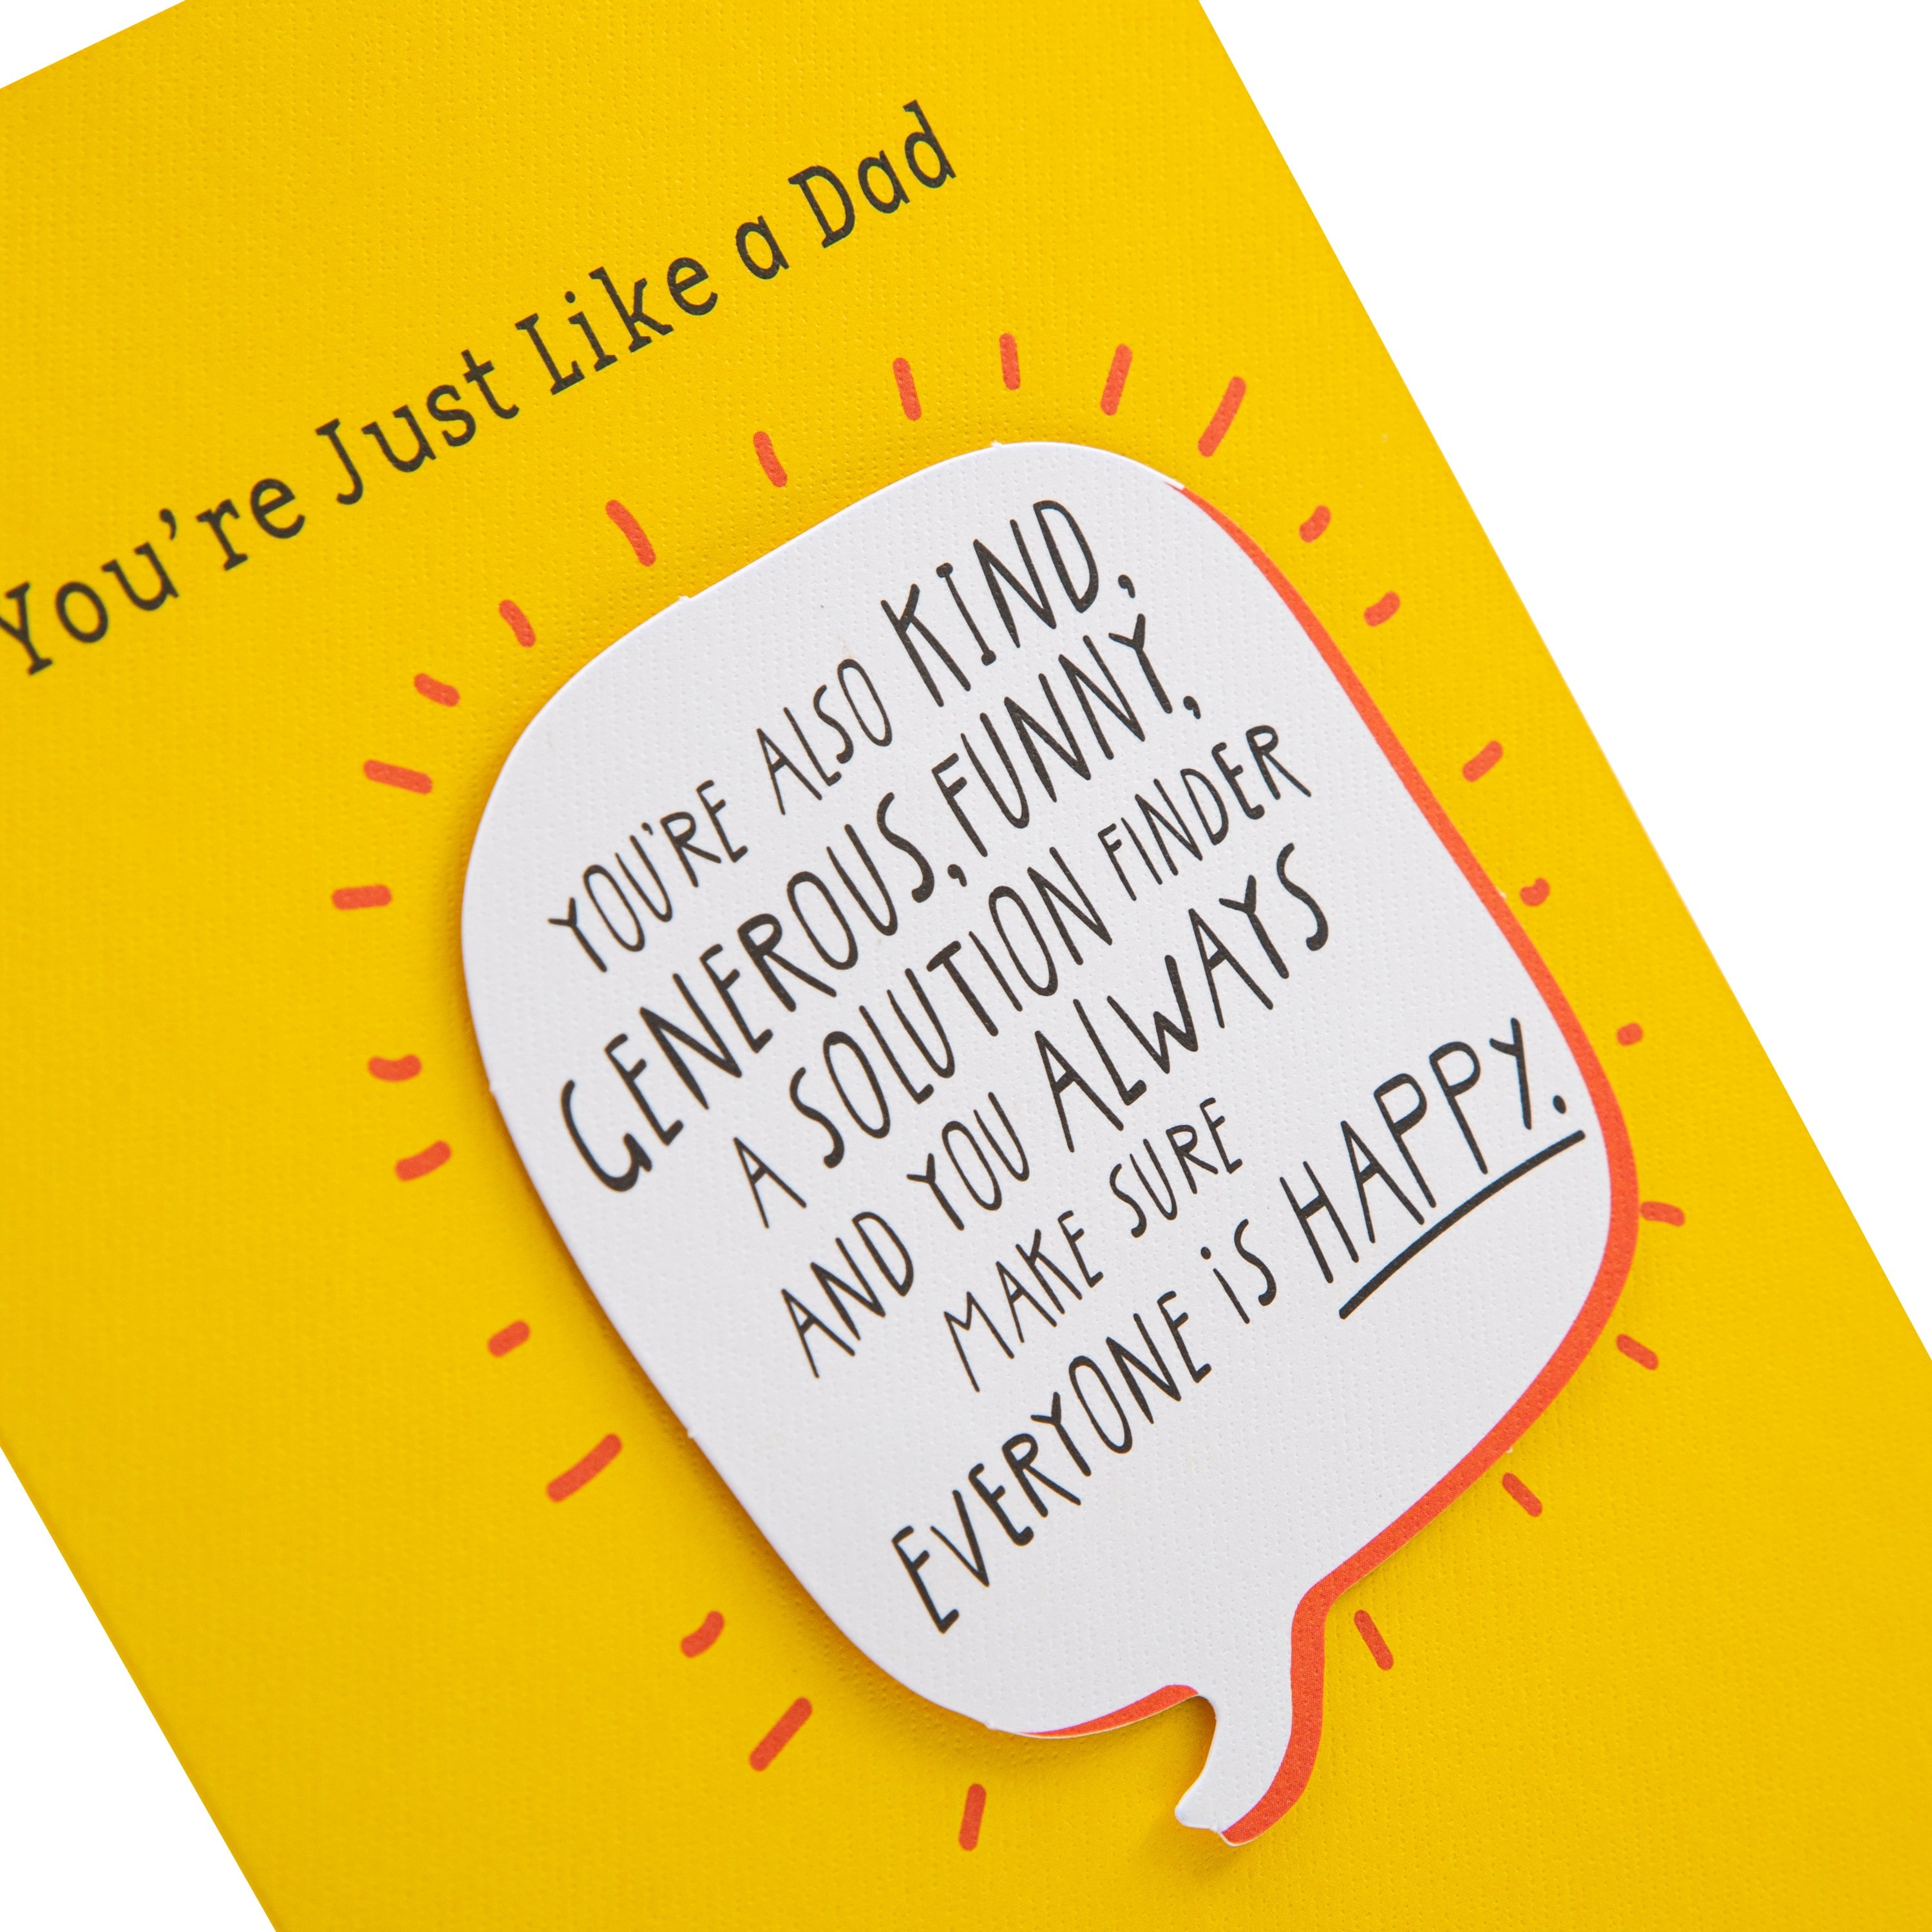 You're Just Like a Dad
YOU'RE ALSO KIND,
GENEROUS, FUNNY,
A SOLUTION FINDER
AND YOU ALWAYS
MAKE SURE
EVERYONE iS HAPPY.